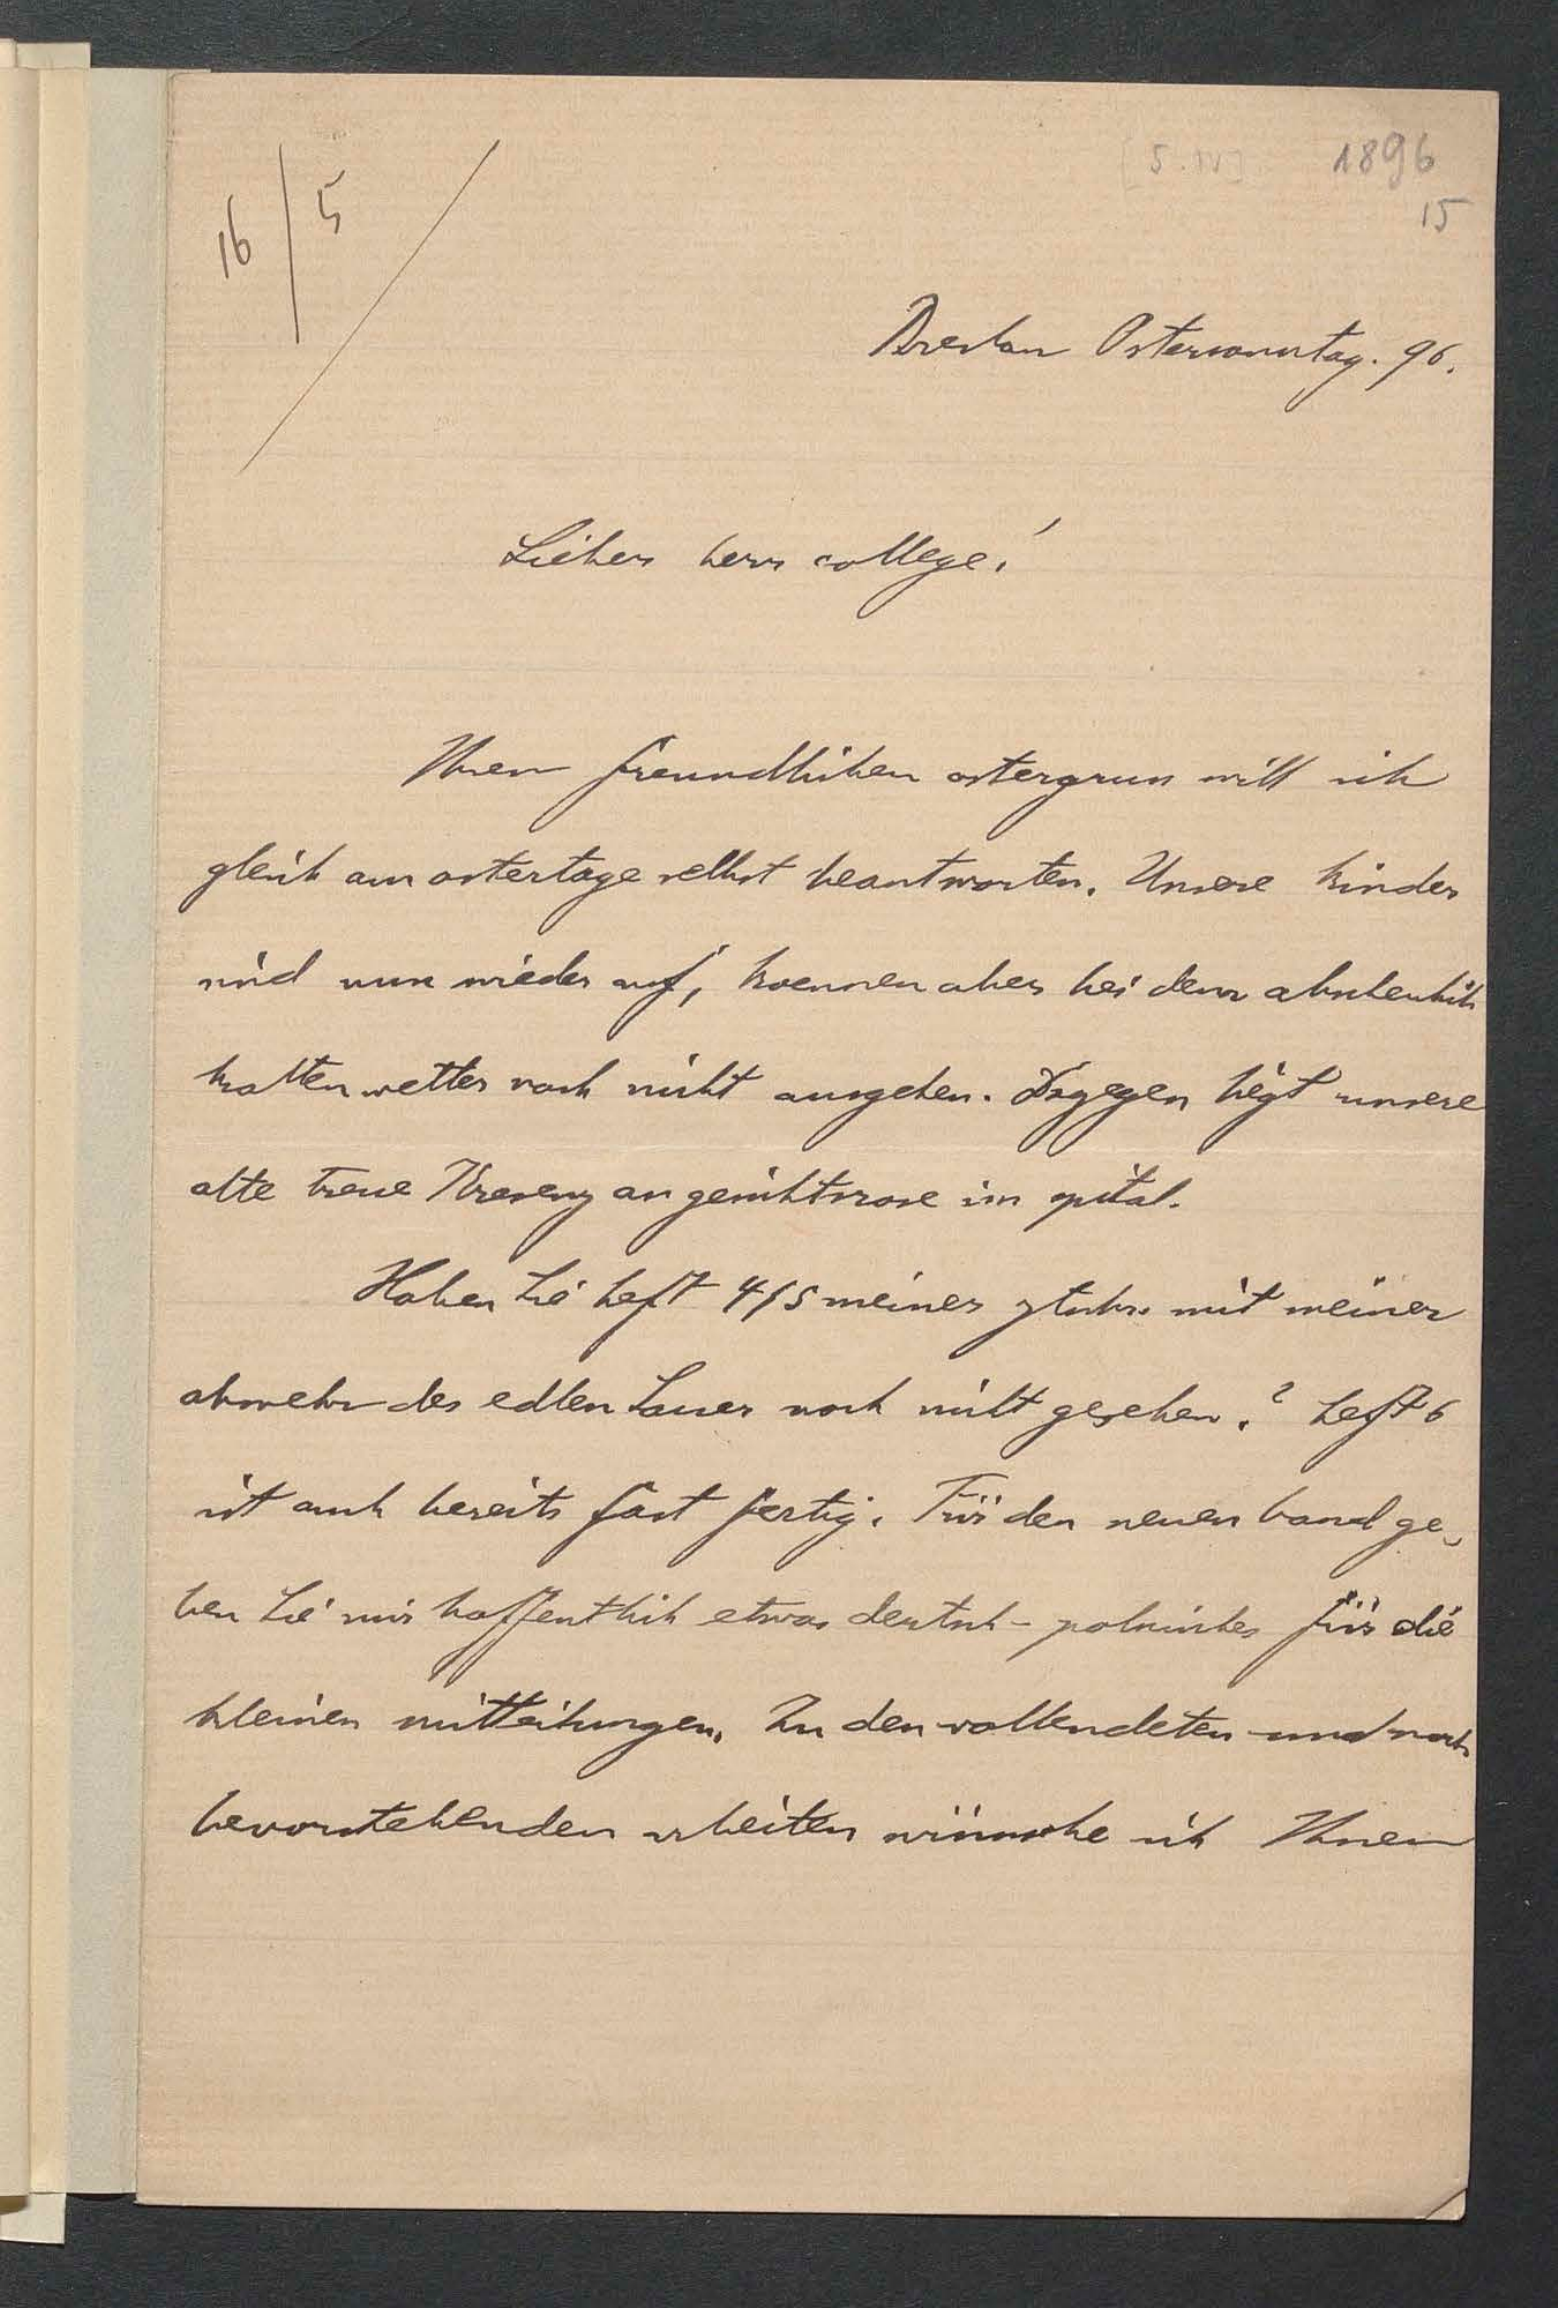 [5.IV] 1896
15
16/5
Breslau Ostersonntag. 96.
Lieber herr college!
Ihren freundlichen ostergruss will ich
gleich am ostertage selbst beantworten. Unsere kinder
sind nun wieder auf, koennen aber bei dem abscheulich
kalten wetter noch nicht ausgehen. Dagegen liegt unsere
alte treue Kresenz an gesichtsrose im spital.
Haben Sie heft 4/5 meiner ztschr. mit meiner
abwehr des edlen Sauer noch nicht gesehen? heft 6
ist auch bereits fast fertig. Für den neuen band ge-
ben Sie mir hoffentlich etwas deutsch-polnisches für die
kleinen mitteilungen. Zu den vollendeten und noch
bevorstehenden arbeiten wünsche ich Ihnen